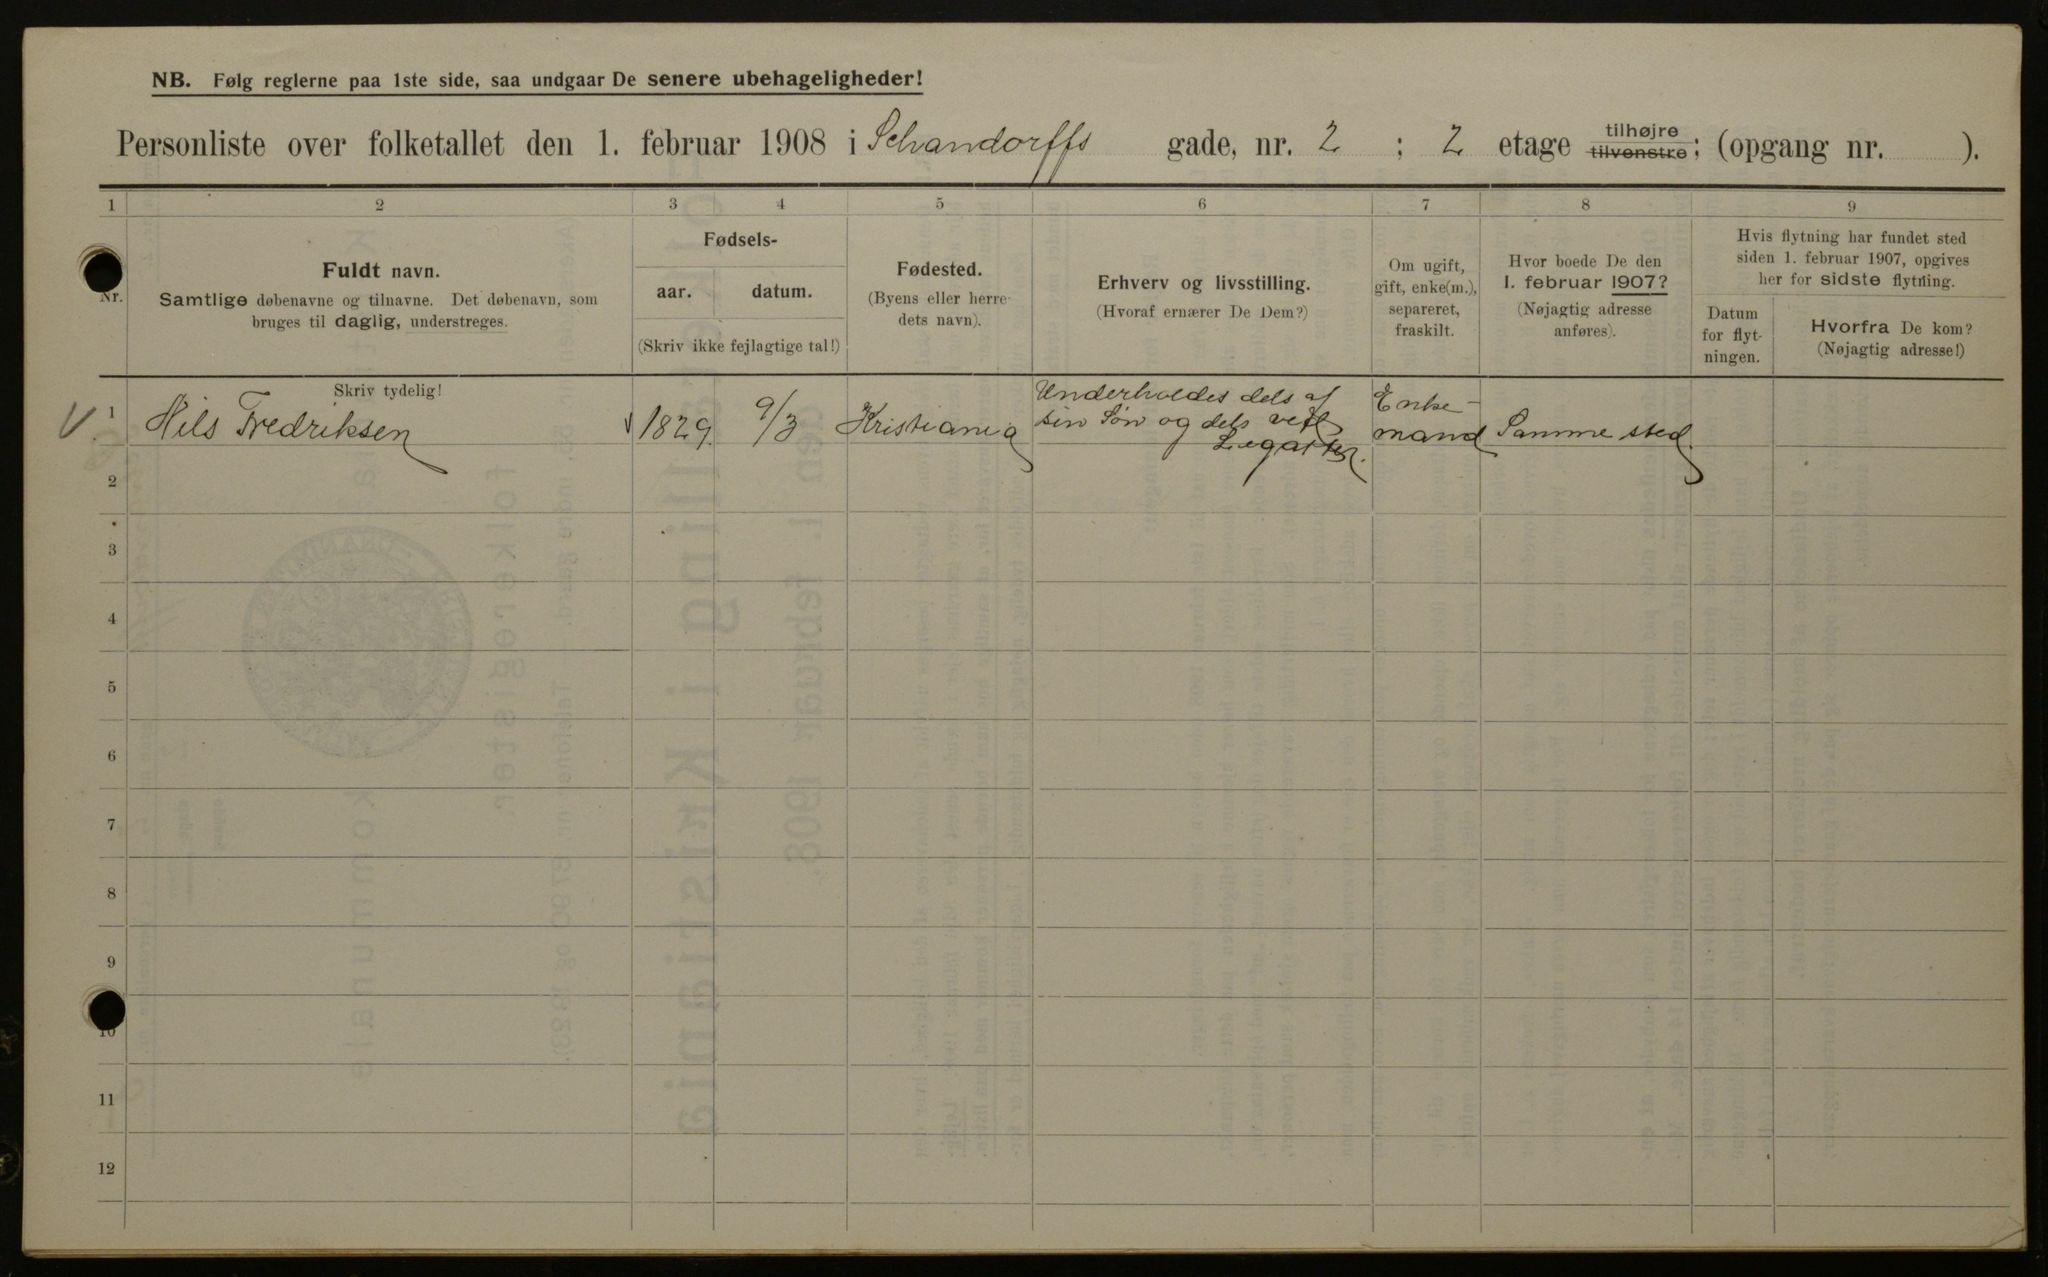 NB. Følg reglerne paa 1ste side, saa undgaar De senere ubehageligheder!
Personliste over folketallet den 1. februar 1908 i Schandorffs gade, nr. 2 ; 2 etage tilhøjre tilvenstre; (opgang nr. ).
1 2 3 4 5 6 7 8 9
Nr.
Fuldt navn.
Samtlige døbenavne og tilnavne. Det døbenavn, som
bruges til daglig, understreges.
Fødsels-
aar. datum.
(Skriv ikke fejlagtige tal!)
Fødested.
(Byens eller herre-
dets navn).
Erhverv og livsstilling.
(Hvoraf ernærer De Dem?)
Om ugift,
gift, enke(m.),
separeret,
fraskilt.
Hvor boede De den
1. februar 1907?
(Nøjagtig adresse
anføres).
Hvis flytning har fundet sted
siden 1. februar 1907, opgives
her for sidste flytning.
Datum
for flyt-
ningen.
Hvorfra De kom?
(Nøjagtig adresse!)
Skriv tydelig!
1 Nils Fredriksen 1829. 9/3 Kristiania
Underholdes dels af
sin Søn og dels ved
Legatter.
Enke-
mand
Samme sted.
2
3
4
5
6
7
8
9
10
11
12